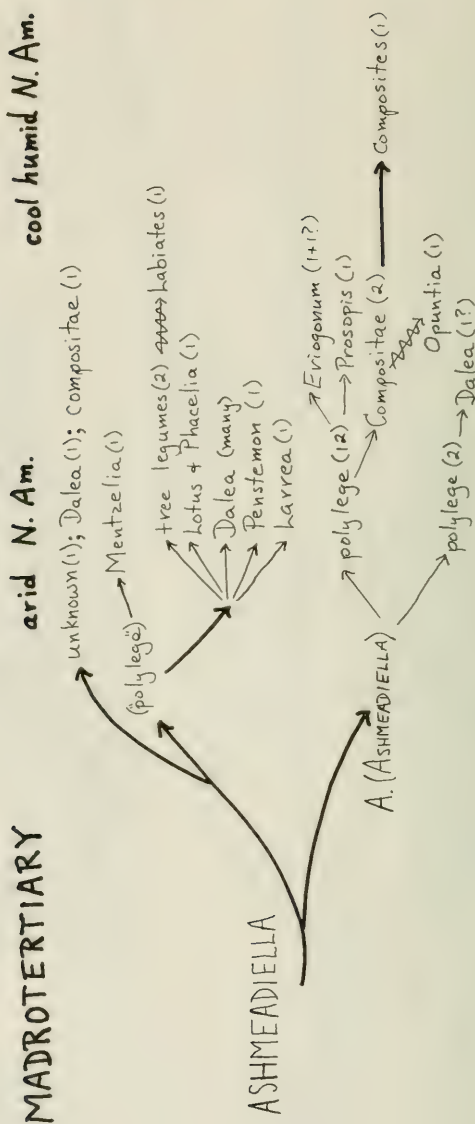 MADROTERTIARY arid N. Am. cool humid N. Am.
unknown (1); Dalea (1); Compositae (1)
("polylege") Mentzelia (1)
tree legumes (2) Labiates (1)
Lotus + Phacelia (1)
Dalea (many)
Penstemon (1)
Larrea (1)
ASHMEADIELLA
Eriogonum (1+1?)
polylege (12) Prosopis (1)
Compositae (2) Composites (1)
Opuntia (1)
A. (ASHMEADIELLA)
polylege (2) Dalea (1?)